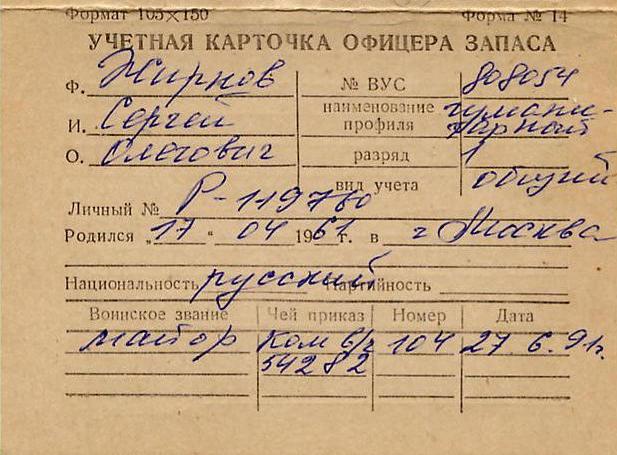 Формат 105×150 Форма № 14
УЧЕТНАЯ КАРТОЧКА ОФИЦЕРА ЗАПАСА
Ф. Жирнов № ВУС 808054
И. Сергей наименование профиля гумани-
тарный
О. Олегович разряд 1
вид учета общий
Личный № Р-119780
Родился „17“ 04 1961 г. в г. Москва
Национальность русский Партийность
Воинское звание Чей приказ Номер Дата
майор Ком в/ч 104 27.6.91г.
54282